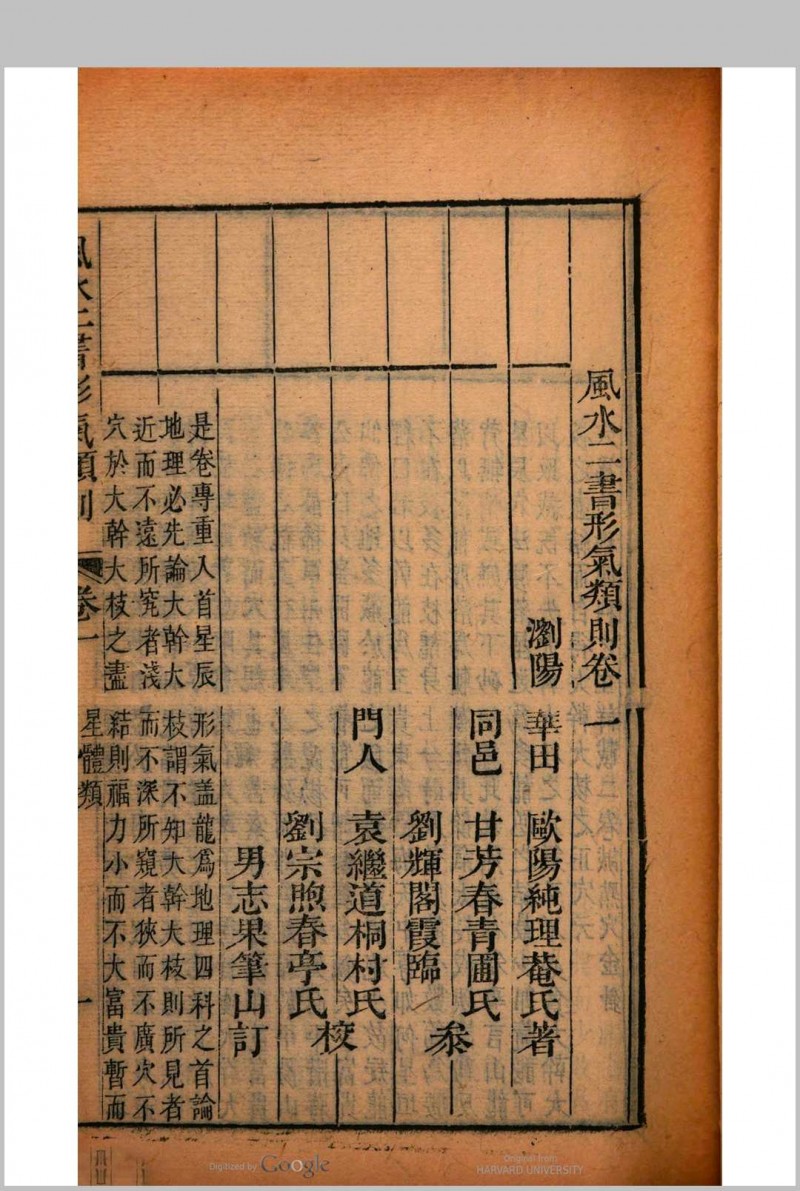 風水二書形氣類則卷一
瀏陽 華田 歐陽純理菴氏著
同邑 甘芳春青圃氏
劉輝閣霞臨
叅
門人 袁繼道桐村氏
劉宗煦春亭氏
校
男志果筆山訂
是卷專重入首星辰形氣盖龍爲地理四科之首論
地理必先論大幹大枝謂不知大幹大枝則所見者
近而不遠所究者淺而不深所窺者狹而不廣穴不
穴於大幹大枝之盡結則福力小而不大富貴暫而
星體類
風水二書形氣類則 卷一 一
Digitized by Google
Original from
HARVARD UNIVERSITY